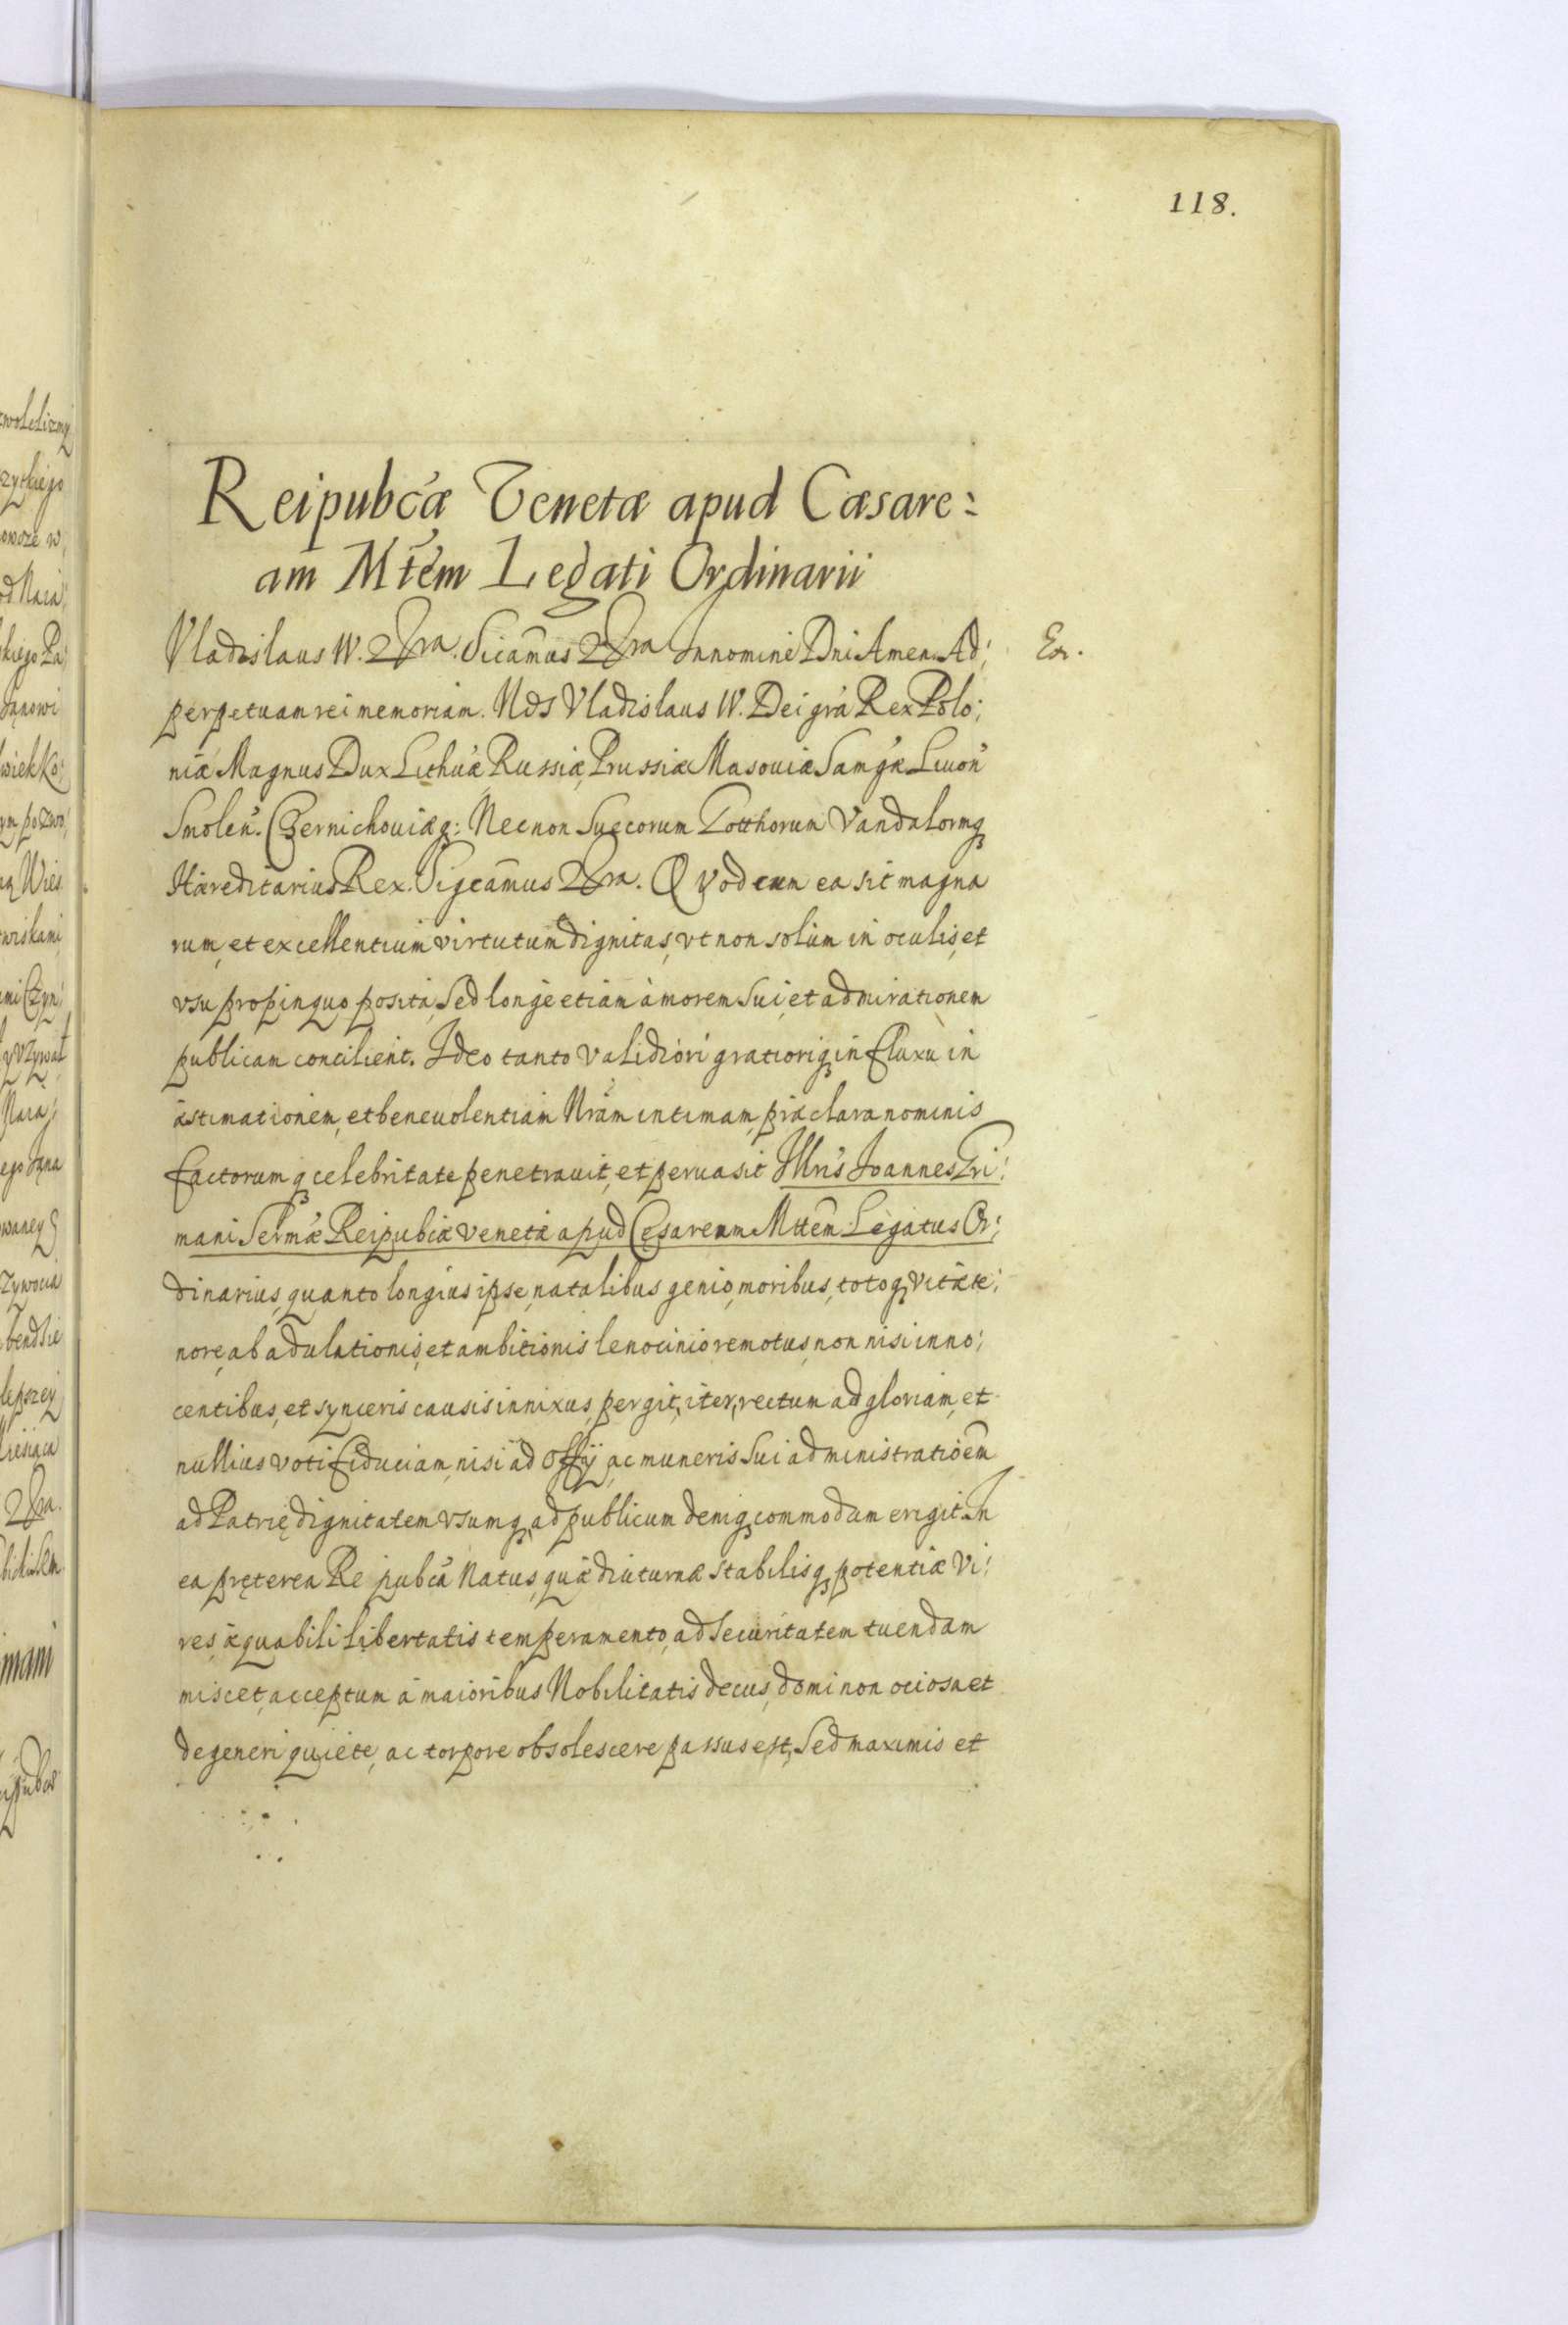 118.
Reipubcæ Venetæ apud Cæsare:
am Mtem Legati Ordinarii
Vladislaus IV. &ra. Sicamus &ra Innomine Dni Amen. Ad:
Ex.
perpetuam rei memoriam. Nos Vladislaus IV. Dei gra Rex Polo:
niæ Magnus Dux Lithuæ Russiæ, Prussiæ Masouiæ Samgæ Liuon
Smolen. Czernichouiæq: Necnon Suecorum Gotthorum Vandalormq
Hæreditarius Rex. Sigcamus &ra. Qvod cum ea sit magna
rum, et excellentium virtutum dignitas, vt non solùm in oculis, et
vsu propinquo posita, Sed longè etiam àmorem Sui, et admirationem
publicam concilient. Ideo tanto validiori gratioriq influxu in
æstimationem, et beneuolentiam Nram intimam, præclara nominis
factorumq celebritate penetrauit, et peruasit Illris Ioannes Gri:
mani Sermæ Reipubcæ venetæ apud Cęsaream Mttem Legatus Or:
dinarius, quanto longius ipse, natalibus genio, moribus, totoq vitæ te:
nore, ab adulationis, et ambitionis lenocinio remotus, non nisi inno:
centibus, et synceris causis innixus, pergit, iter, rectum ad gloriam, et
nullius voti fiduciam, nisi ad offij ac muneris Sui administratioem
ad Patrię dignitatem vsumq, ad publicum deniq commodum erigit. In
ea pręterea Re pubca Natus, quæ diuturnæ stabilisq potentiæ vi:
res, æquabili libertatis temperamento, ad securitatem tuendam
miscet, acceptum à maioribus Nobilitatis decus, domi non ociosa et
degeneri quiete, ac torpore obsolescere passus est, Sed maximis et